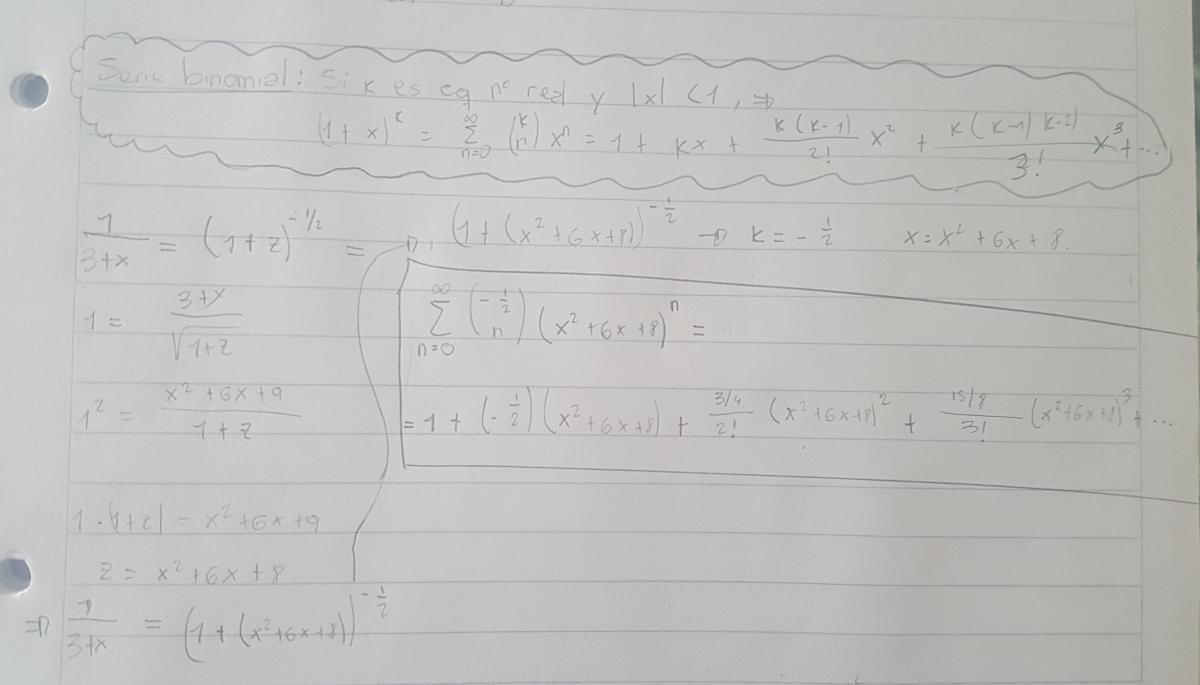 Serie binomial: Si k es cq nº real y |x| < 1, ⇒
(1 + x)^k = ∑_{n=0}^{∞} (k n) x^n = 1 + kx + k(k-1)/2! x² + k(k-1)k-2)/3! x³ + ...
1/(3+x) = (1+z)^{-1/2} = (1 + (x²+6x+8))^{-1/2} → k = -1/2 x = x² + 6x + 8.
1 = (3+x)/√(1+z)
∑_{n=0}^{∞} (-1/2 n) (x²+6x+8)^n =
1² = (x²+6x+9)/(1+z)
= 1 + (-1/2)(x²+6x+8) + (3/4)/2! (x²+6x+8)² + (15/8)/3! (x²+6x+8)³ + ...
1 · |1+z| = x²+6x+9
z = x²+6x+8
⇒ 1/(3+x) = (1 + (x²+6x+8))^{-1/2}